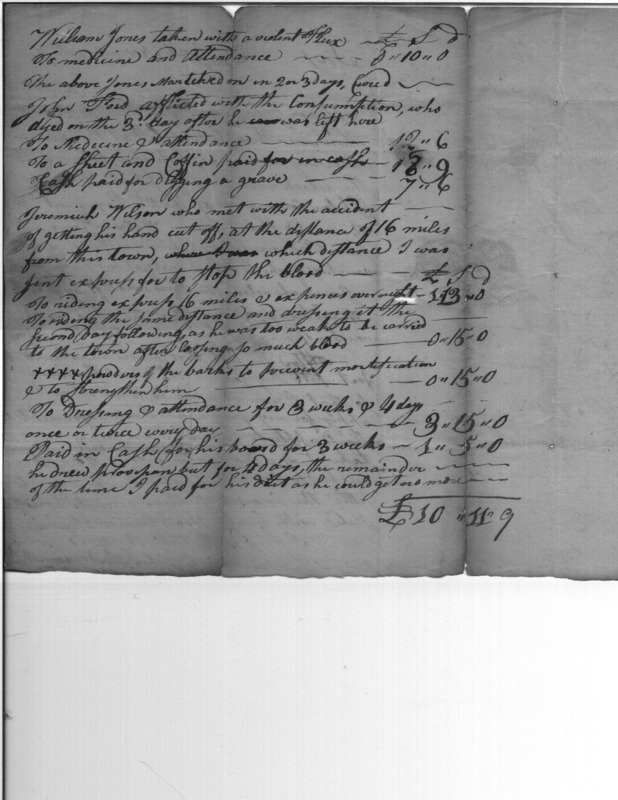 William Jones taken with a violent Flux — £ S d
To medicine and Attendance — 0 " 10 " 0
The above Jones Marched on in 2 or 3 days, Cured
John Ford afflicted with the Consumption, who
dyed on the 3d day after he was was left here
To Medicine & attendance — 17 " 6
To a Sheet and Coffin paid for in cash — 18 " 9
Cash paid for digging a grave — 7 " 6
Jeremiah Wilson who met with the accident
of getting his hand cut off, at the distance of 16 miles
from this town, which distance I was
sent express for to stop the blood — £ S d
To riding express 16 miles & expences over night — 1 " 13 " 0
To riding the same distance and dressing it the
second day following, as he was too weak to be carried
to the town after loosing so much blood — 0 " 15 " 0
xxxx powders of the barks to prevent mortification
& to strengthen him — 0 " 15 " 0
To Dressing & attendance for 3 weeks & 4 days
once or twice every day — 3 " 15 " 0
Paid in Cash for his board for 3 weeks — 1 " 5 " 0
he drew provision but for 4 days, the remainder
of the time I paid for his diet as he could get no more
£ 10 " 11 " 9